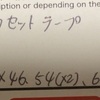 ption or depending on the
セット テープ
×46.54(×2), 6